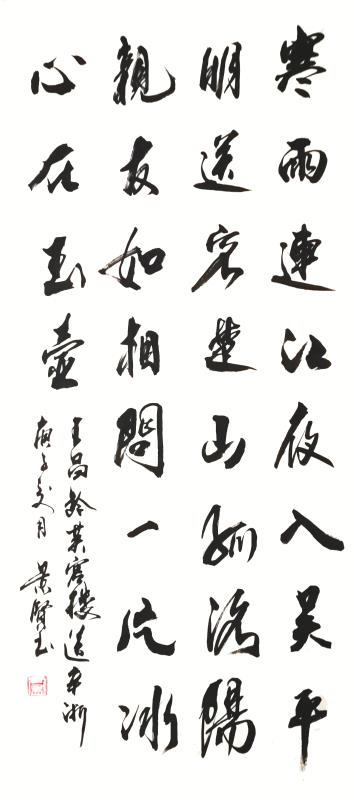 寒雨連江夜入吳平
明送客楚山孤洛陽
親友如相問一片冰
心在玉壺
王昌齡芙蓉樓送辛漸
庚子夏月 景賢书